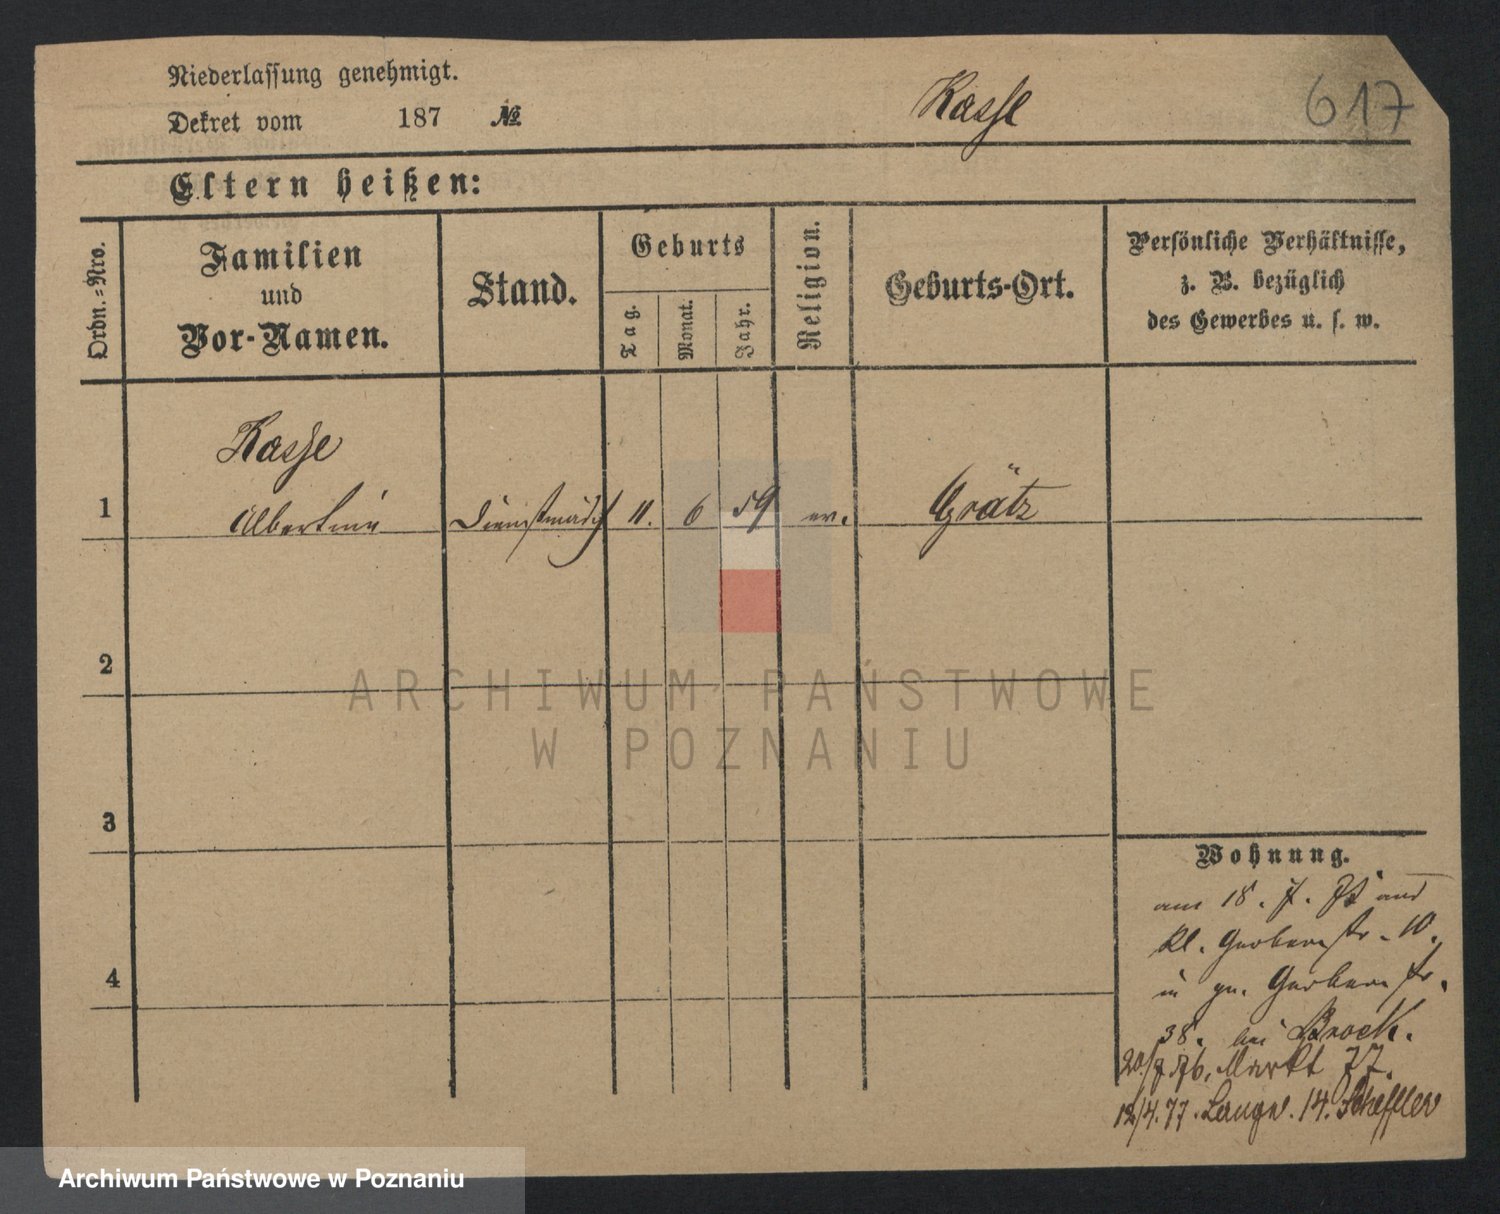 Niederlassung genehmigt.
Dekret vom 187 №
Kasse
617
Eltern heißen:
Ordn.=Nro.
Familien
und
Vor-Namen.
Stand.
Geburts
Tag.
Monat.
Jahr.
Religion.
Geburts-Ort.
Persönliche Verhältnisse,
z. B. bezüglich
des Gewerbes u. s. w.
Kasse
1 Albertine Dienstmädch 11. 6 59 ev. Grätz
2
ARCHIWUM PAŃSTWOWE
W POZNANIU
3
4
Wohnung.
am 18. 7. 75 aus
kl. Gerberstr. 10.
in gr. Gerberstr.
38. bei Brock.
20/7 76. Markt 77.
12/4. 77. Langst. 14. Scheffler
Archiwum Państwowe w Poznaniu